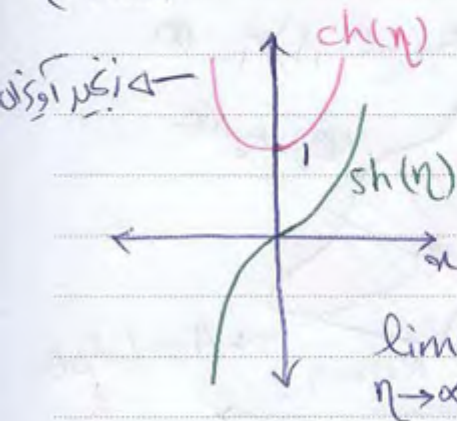 ch(η)
زنجیر آویزان
1
sh(η)
x
lim
η→∞